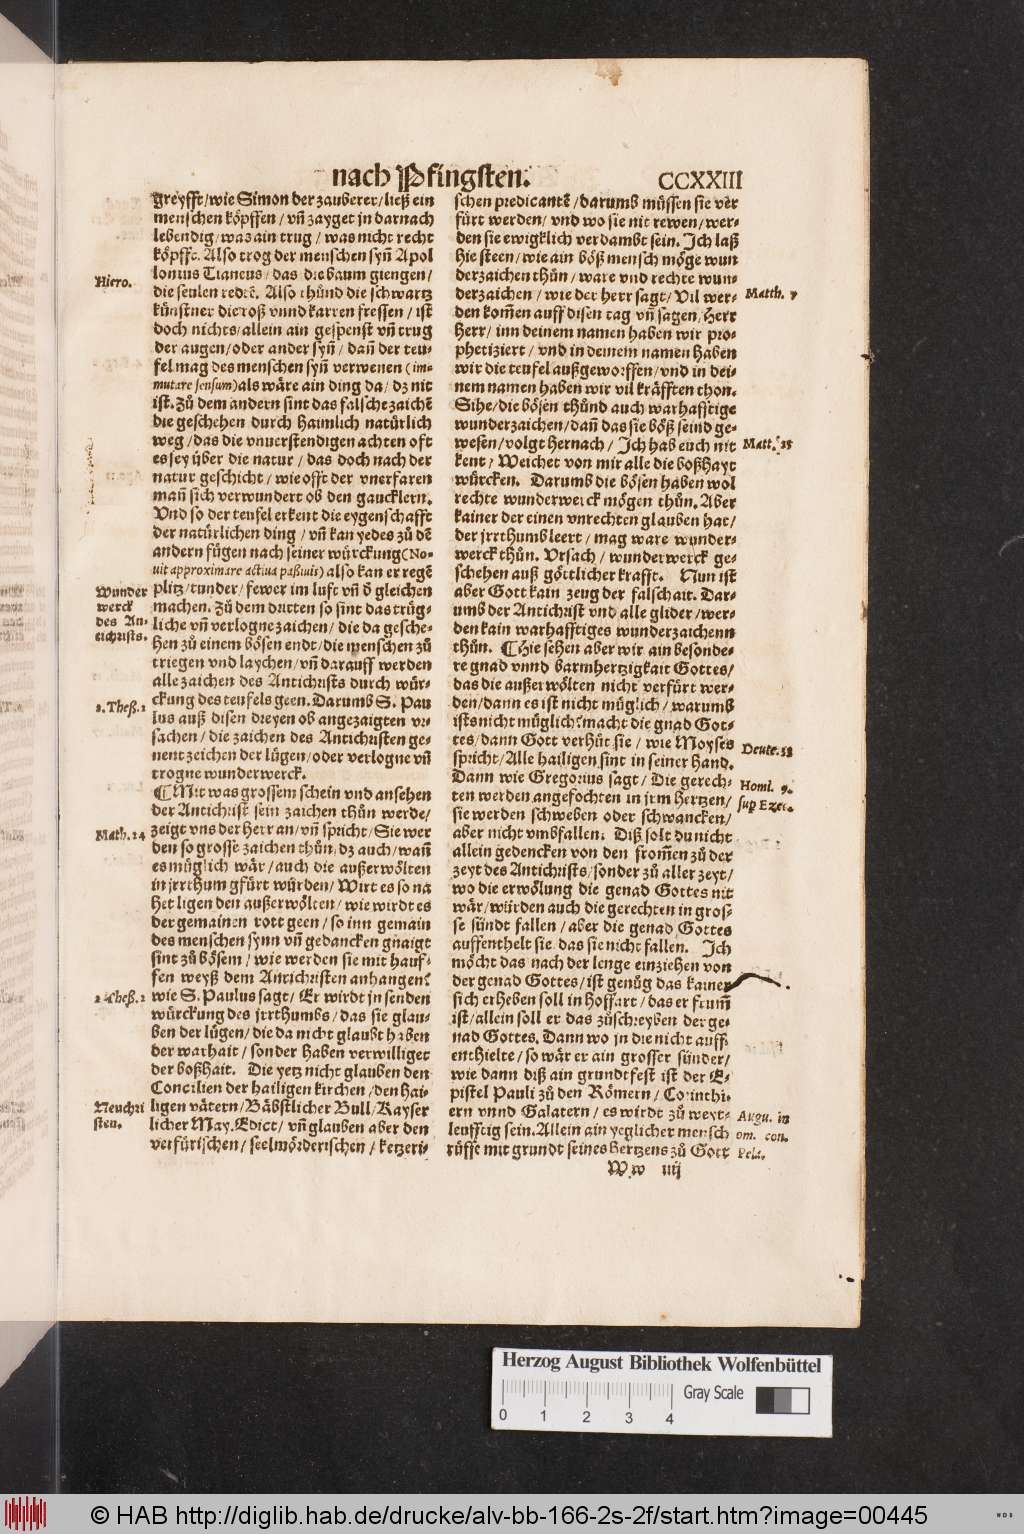 nach Pfingsten.
CCXXIII
greyfft/wie Simon der zauberer/ließ ein
menschen köpffen / vñ zayget jn darnach
lebendig/was ain trug / was nicht recht
köpfft. Also trog der menschen syñ Apol
Hiero.
lonius Tianeus/das die baum giengen/
die seulen redtẽ. Also thůnd die schwartz
künstner die roß vnnd karren fressen / ist
doch nichts/allein ain gespenst vñ trug
der augen/oder ander syñ / dañ der teu-
fel mag des menschen syñ verwenen (im-
mutare sensum) als wäre ain ding da/ dz nit
ist. Zů dem andern sint das falsche zaichẽ
die geschehen durch haimlich natürlich
weg/das die vnuerstendigen achten oft
es sey über die natur / das doch nach der
natur geschicht / wie offt der vnerfaren
mañ sich verwundert ob den gaucklern.
Vnd so der teufel erkent die eygenschafft
der natürlichen ding / vñ kan yedes zů dẽ
andern fügen nach seiner würckung (No-
uit approximare actiua paßiuis) also kan er regẽ
Wunder
werck
des An-
tichrists.
plitz/tunder/fewer im luft vñ ð gleichen
machen. Zů dem dritten so sint das trüg-
liche vñ verlogne zaichen/die da gesche-
hen zů einem bösen endt/die menschen zů
triegen vnd laychen/vñ darauff werden
alle zaichen des Antichrists durch wür-
ckung des teufels geen. Darumb S. Pau
2. Theß. 2
lus auß disen dreyen ob angezaigten vr-
sachen/die zaichen des Antichristen ge-
nent zeichen der lügen/oder verlogne vñ
trogne wunderwerck.
¶Mit was grossem schein vnd ansehen
der Antichrist sein zaichen thůn werde/
Math. 24
zeigt vns der Herr an/vñ spricht/Sie wer
den so grosse zaichen thůn/dz auch/wañ
es müglich wär/auch die außerwölten
in jrrthum gfürt würden/Wirt es so na
het ligen den außerwölten/wie wirdt es
der gemainen rott geen/so inn gemain
des menschen synn vñ gedancken gnaigt
sint zů bösem / wie werden sie mit hauf-
fen weyß dem Antichristen anhangen?
2 Theß. 2
wie S. Paulus sagt/ Er wirdt jn senden
würckung des jrrthumbs/das sie glau-
ben der lügen/die da nicht glaubt haben
der warhait/sonder haben verwilliget
der boßhait. Die yetz nicht glauben den
Concilien der hailigen kirchen/den hai-
Neuchri
sten.
ligen vätern/Bäbstlicher Bull/Kayser
licher May. Edict/vñ glauben aber den
verfürischen/seelmörderischen/ketzeri-
schen predicantẽ/darumb müssen sie ver
fürt werden/vnd wo sie nit rewen/wer-
den sie ewigklich verdambt sein. Ich laß
hie steen/wie ain böß mensch möge wun
derzaichen thůn/ware vnd rechte wun-
Matth. 7
derzaichen/wie der herr sagt/Vil wer-
den kom̃en auff disen tag vñ sagen/Herr
Herr/inn deinem namen haben wir pro-
phetiziert/vnd in deinem namen haben
wir die teufel außgeworffen/vnd in dei-
nem namen haben wir vil kräfften thon.
Sihe/die bösen thůnd auch warhafftige
wunderzaichen/dañ das sie böß seind ge-
Matt. 25
wesen/volgt hernach/Ich hab euch nit
kent/Weichet von mir alle die boßhayt
würcken. Darumb die bösen haben wol
rechte wunderwerck mögen thůn. Aber
kainer der einen vnrechten glauben hat/
der jrrthumb leert/mag ware wunder-
werck thůn. Vrsach/wunderwerck ge-
schehen auß göttlicher krafft. Nun ist
aber Gott kain zeug der falschait. Dar-
umb der Antichrist vnd alle glider/wer-
den kain warhafftiges wunderzaichenn
thůn. ¶Hie sehen aber wir ain besonde-
re gnad vnnd barmhertzigkait Gottes/
das die außerwölten nicht verfürt wer-
den/dann es ist nicht müglich/warumb
ists nicht müglich? macht die gnad Got-
Deute. 33
tes/dann Gott verhüt sie/wie Moyses
spricht/Alle hailigen sint in seiner hand.
Homi. 9.
sup Ezec.
Dann wie Gregorius sagt/Die gerech-
ten werden angefochten in jrm hertzen/
sie werden schweben oder schwancken/
aber nicht vmbfallen. Diß solt du nicht
allein gedencken von den from̃en zů der
zeyt des Antichrists/sonder zů aller zeyt/
wo die erwölung die genad Gottes nit
wär/würden auch die gerechten in gros-
se sündt fallen/aber die genad Gottes
auffenthelt sie das sie nicht fallen. Ich
möcht das nach der lenge einziehen von
der genad Gottes/ist genůg das kainer
sich erheben soll in hoffart/das er frum̃
ist/allein soll er das zůschreyben der ge-
nad Gottes. Dann wo jn die nicht auff
enthielte/so wär er ain grosser sünder/
wie dann diß ain grundtfest ist der E-
pistel Pauli zů den Römern/Corinthi-
Augu. in
om. con.
Pela.
ern vnnd Galatern/es wirdt zů weyt-
leufftig sein. Allein ain yeglicher mensch
rüffe mit grundt seines hertzens zů Gott
Ww iiij
Herzog August Bibliothek Wolfenbüttel
Gray Scale
0 1 2 3 4
© HAB http://diglib.hab.de/drucke/alv-bb-166-2s-2f/start.htm?image=00445